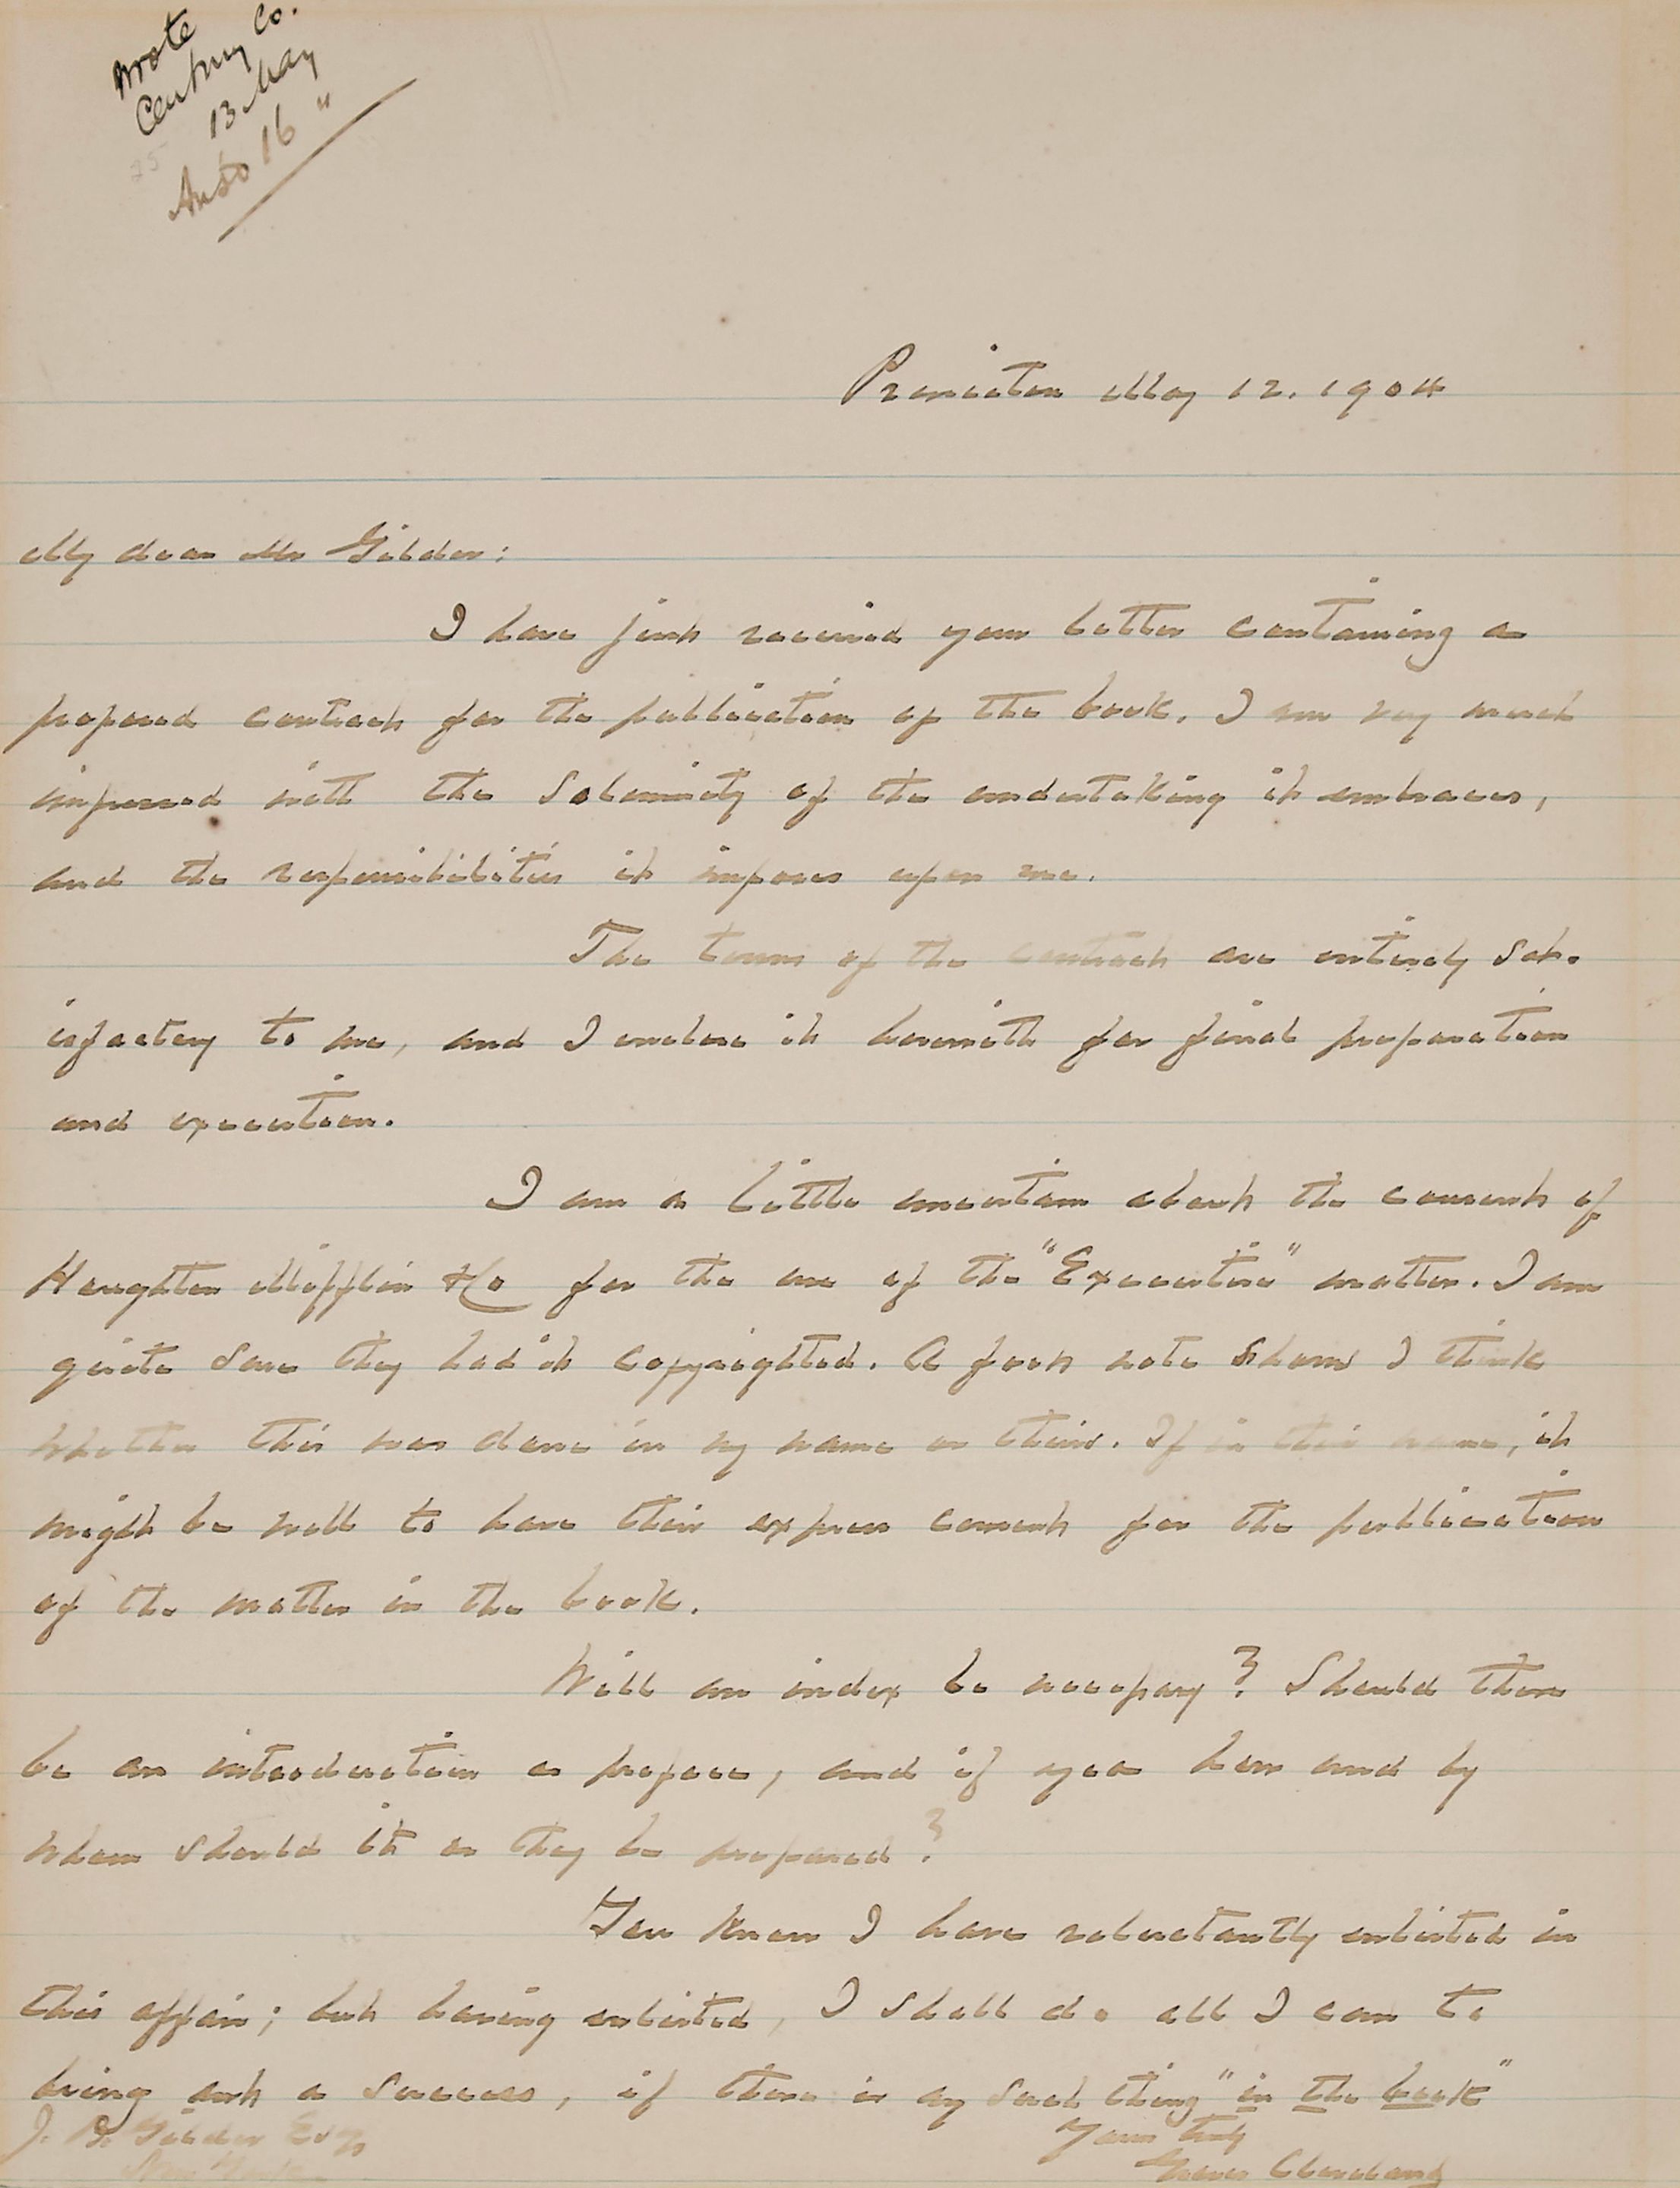 Wrote
Century Co.
13 May
Ans'd 16 "
Princeton May 12. 1904
My dear Mr Gilder:
I have just received your letter containing a
proposed contract for the publication of the book. I am very much
impressed with the solemnity of the undertaking it embraces,
and the responsibilities it imposes upon me.
The terms of the contract are entirely sat-
isfactory to me, and I enclose it herewith for final preparation
and execution.
I am a little uncertain about the consent of
Houghton Mifflin & Co for the use of the "Executive" matter. I am
quite sure they had it copyrighted. A foot note shows I think
whether this was done in my name or theirs. If in their name, it
might be well to have their express consent for the publication
of the matter in the book.
Will an index be necessary? Should there
be an introduction or preface, and if yea how and by
whom should it or they be prepared?
You know I have reluctantly enlisted in
this affair; but having enlisted, I shall do all I can to
bring out a success, if there is any such thing "in the book"
Yours truly
Grover Cleveland
J. B. Gilder Esq
New York